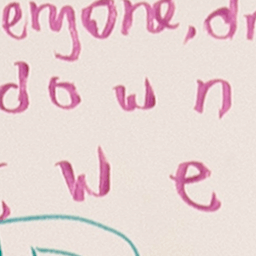 eryone, d
d o w n
w e